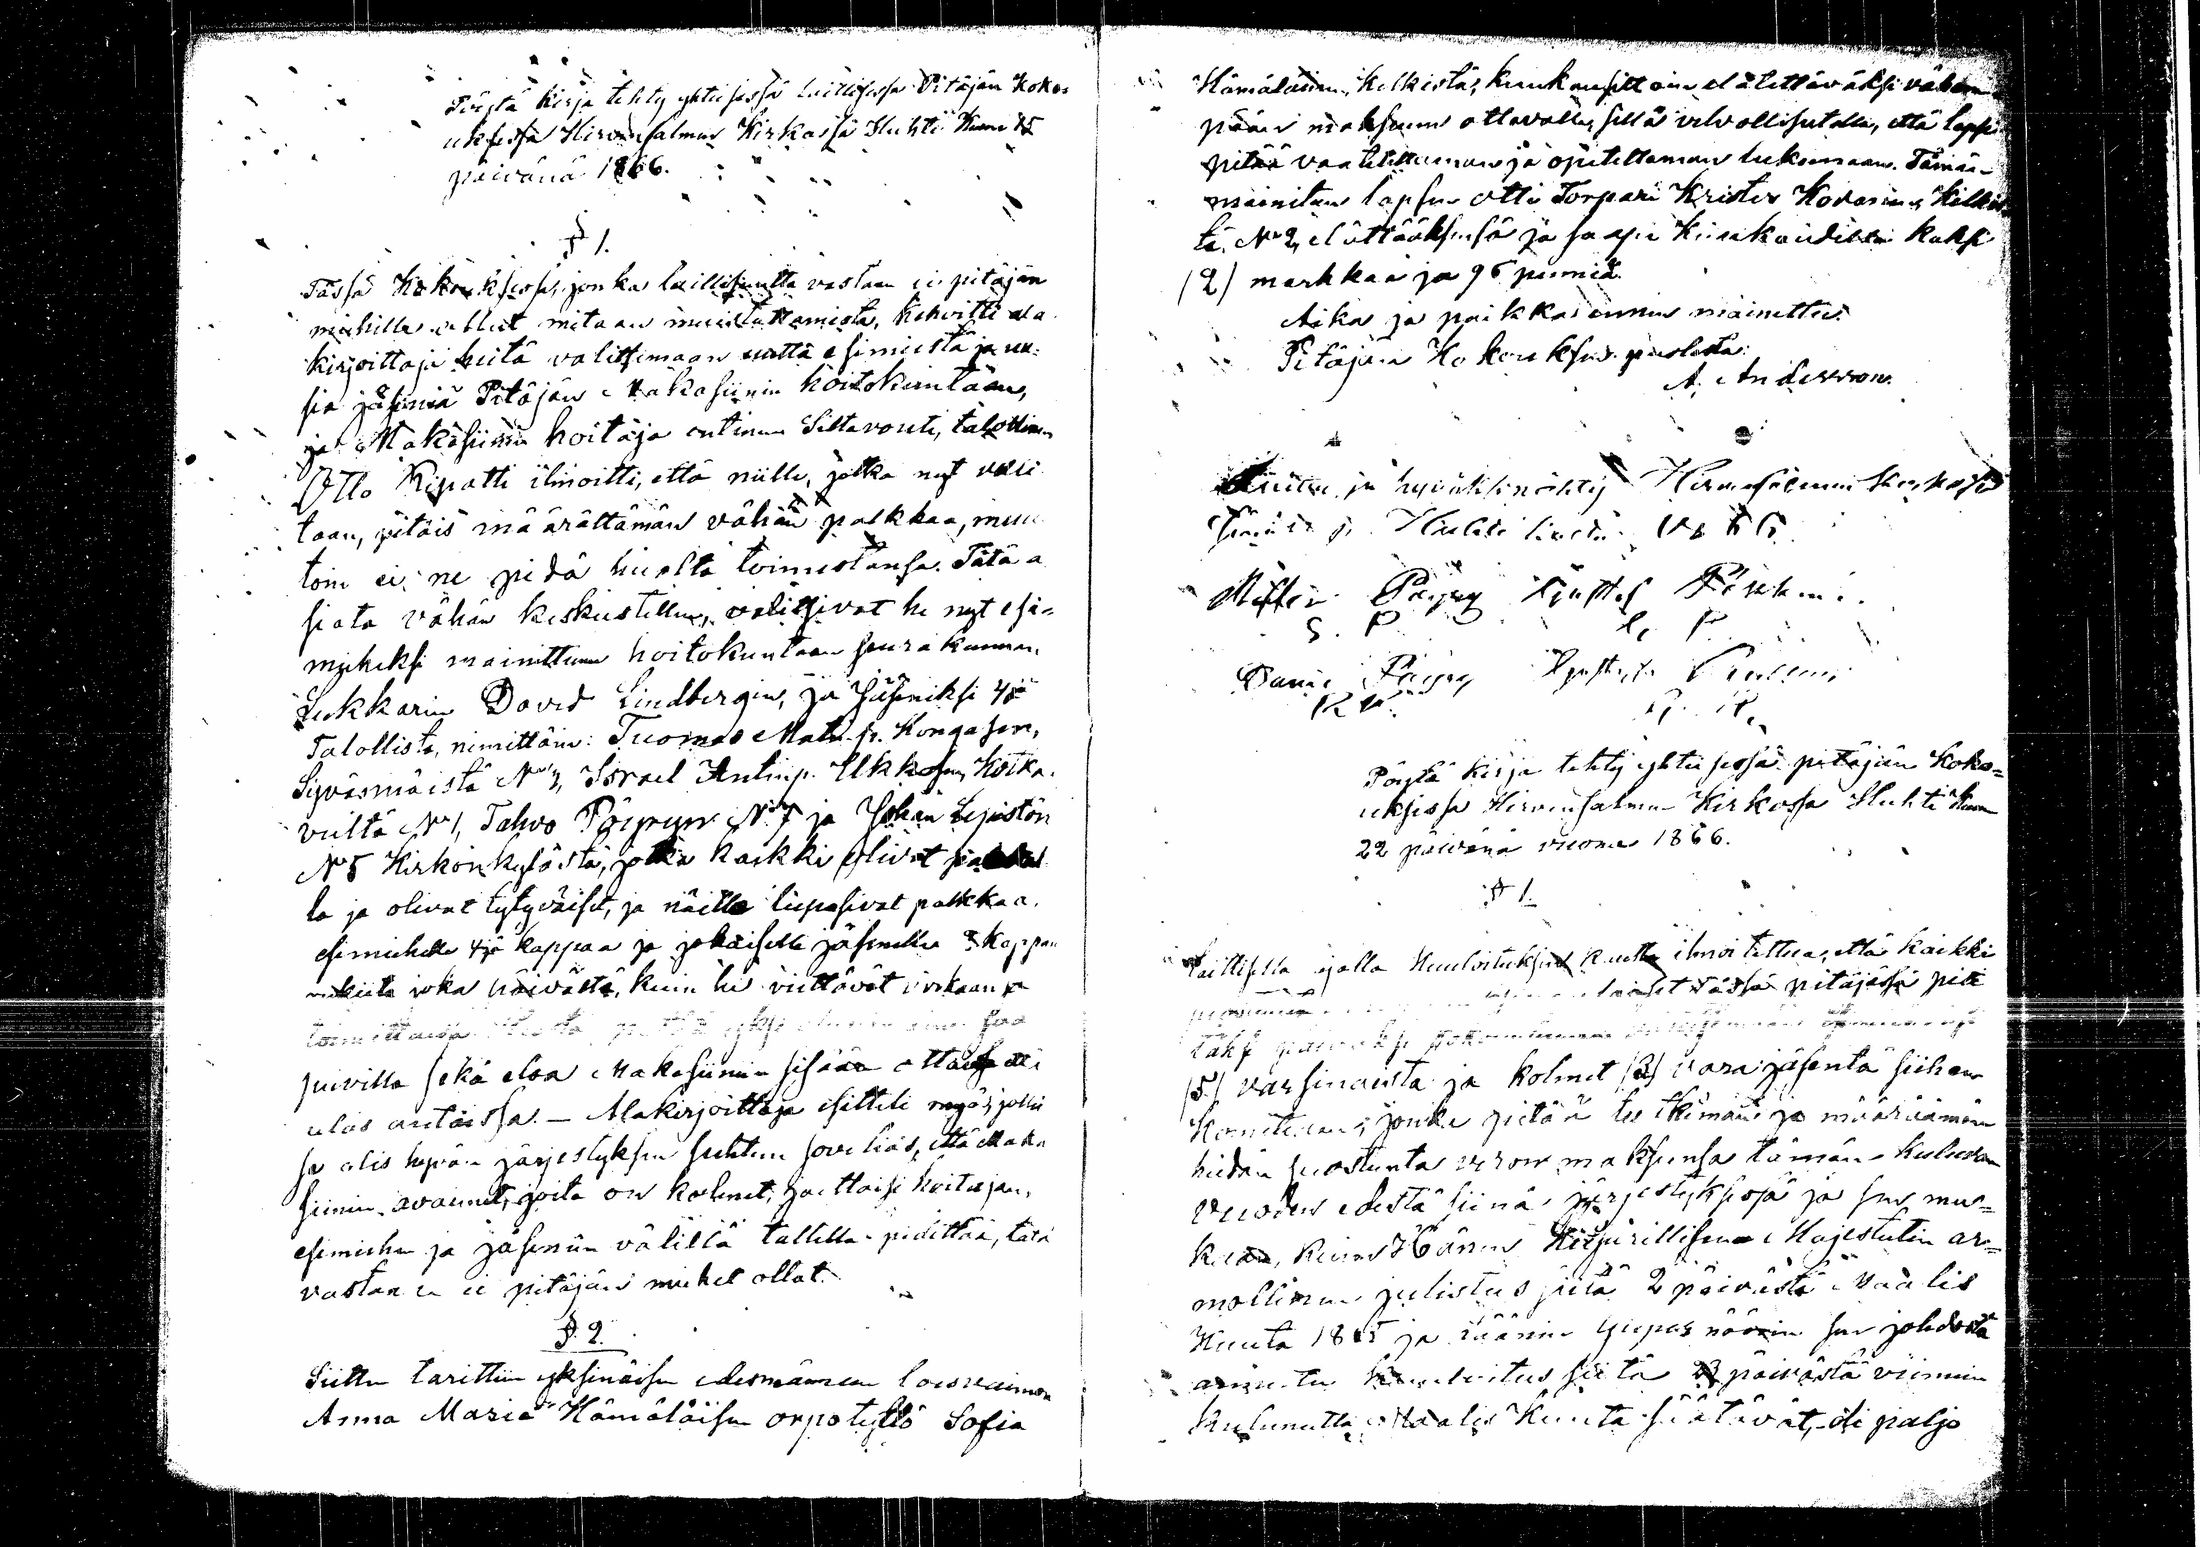 Pöytä kirja tehty yhteisessä laillisessa Pitäjän Koko=
uksessa Hirvensalmen Kirkossa Huhti Kuun 15
päivänä 1866.
§ 1.
Tässä Kokouksessa, jonka laillisuutta vastaan ei pitäjän
miehillä ollut mitään muistuttamista, kehoitti ala
kirjoittaja heitä valitsemaan uutta esimiestä ja uu=
sia jäseniä Pitäjän Makasiinin hoitokuntaan,
ja Makasiinin hoitaja entinen Siltavouti, talollinen
Otto Ripatti ilmoitti, että niille, jotka nyt vali
taan, pitäis määrättämän vähän palkkaa, muu
toin ei ne pidä huolta toimestansa. Tätä a
siata vähän keskusteltua, valitsivat he nyt esi=
mieheksi mainittuun hoitokuntaan seurakunnan
Lukkarin David Lindbergin, ja Jäseniksi 4jä
Talollista, nimittäin: Tuomas Matin p. Kongasen,
Syväsmäistä No 2, Israel Antinp. Ukkosen, Hoika.
veiltä No 1, Tahvo Pöyryn No 7 ja Johan Lepistön
No 5 Kirkonkylästä, jotka kaikki olivat
la ja olivat tytyväiset, ja näille lupasivat palkkaa.
esimiehelle 4jä kappaa ja jokaiselle jäsenelle 3 kappaa
rukiita joka päivästä, kuin he viettävät virkaansa
toimittaissa.
päivillä sekä eloa Makasiinin sisään ottaissa eli
ulos antaissa. – Alakirjoittaja esitteli myös, joka
se olis hyvän järjestyksen suhteen sovelias, että Maka
siinin avaimet, joita on kolmet, jaettaisi hoitajan,
esimiehen ja jäsenien välillä tallella pidettää, tätä
vastaan ei pitäjän miehet ollat.
§. 2.
Sitten tarittiin yksinäisen edesmänneen loisvaimon
Anna Maria Hämäläisen orpotyttö Sofia
Hämäläinen, Kelkistä, kuukausittain elätettäväksi vähem
pään maksuun ottavalle, sillä velvollisutella, että lapsi
pitää vaatetettaman ja opetettaman lukemaan. Tämän
mainitun lapsen otti Torpari Krister Kovanen, Kilkis
tä No 2, elättääksensä ja saapi Kuukaudilta kaksi
(2) markkaa ja 96 penniä.
Aika ja paikka ennen mainittu.
Pitäjän Kokouksen puolesta:
A. Andersson.
Luettu ja hyväksinähty Hirvensalmen kirkossa
Huhti kuuta 1866
Matti Pöyry Kustaf Päsänen.
S. P. L. P.
Daniel Pöyry Kustaf
Pöytä kirja tehty yhteisessä pitäjän Koko=
uksessa Hirvensalmen Kirkossa Huhti Kuun
22 päivänä vuonna 1866.
§ 1.
laillisella ajalla Kuuloituksen kautta ilmoitettua, että kaikki
tässä pitäjässä pite
täksi päiväksi
(5) varsinaista ja kolmet (3) vara jäsentä siihen
Komiteaan, jonka pitää tutkiman ja määräämän
heidän suostunta veron maksunsa tämän kuluvan
vuoden edestä siinä järjestyksessä ja sen mu=
kaan, kuin Hänen Keisarillisen Majestetin ar=
mollinen julistus siitä 2 päivästä Maalis
Kuuta 1865 ja läänin Guvernöörin sen johdosta
annettu kuuloitus siitä päivästä viimein
kulunutta Maalis Kuuta säätävät, oli paljo